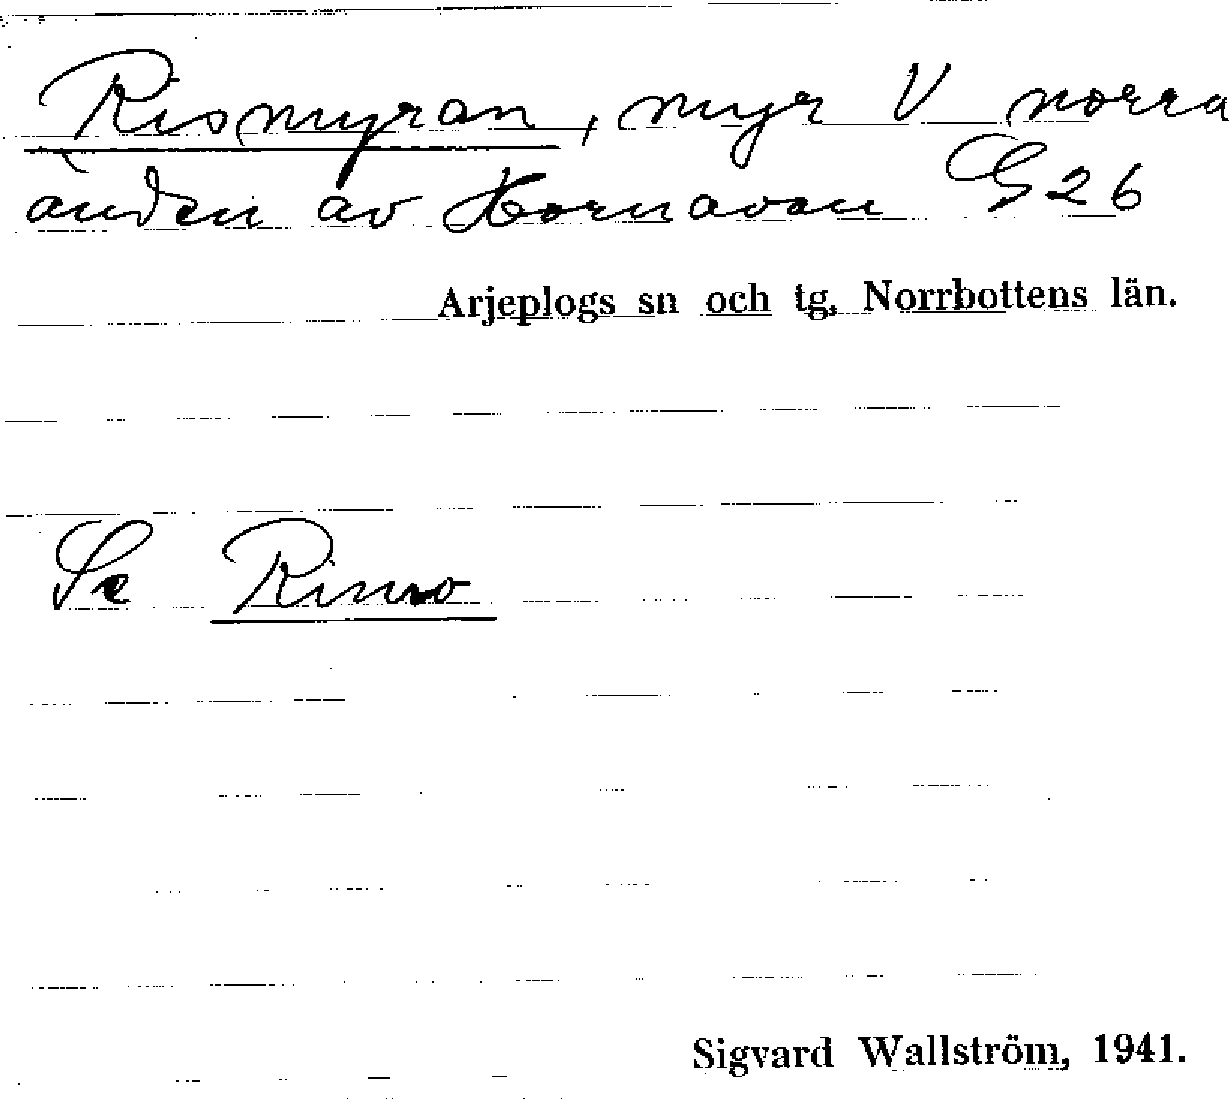 Rismyran, myr V norra
änden av Hornavan G 26
Arjeplogs sn och tg, Norrbottens län.
Se
Sigvard Wallström, 1941.